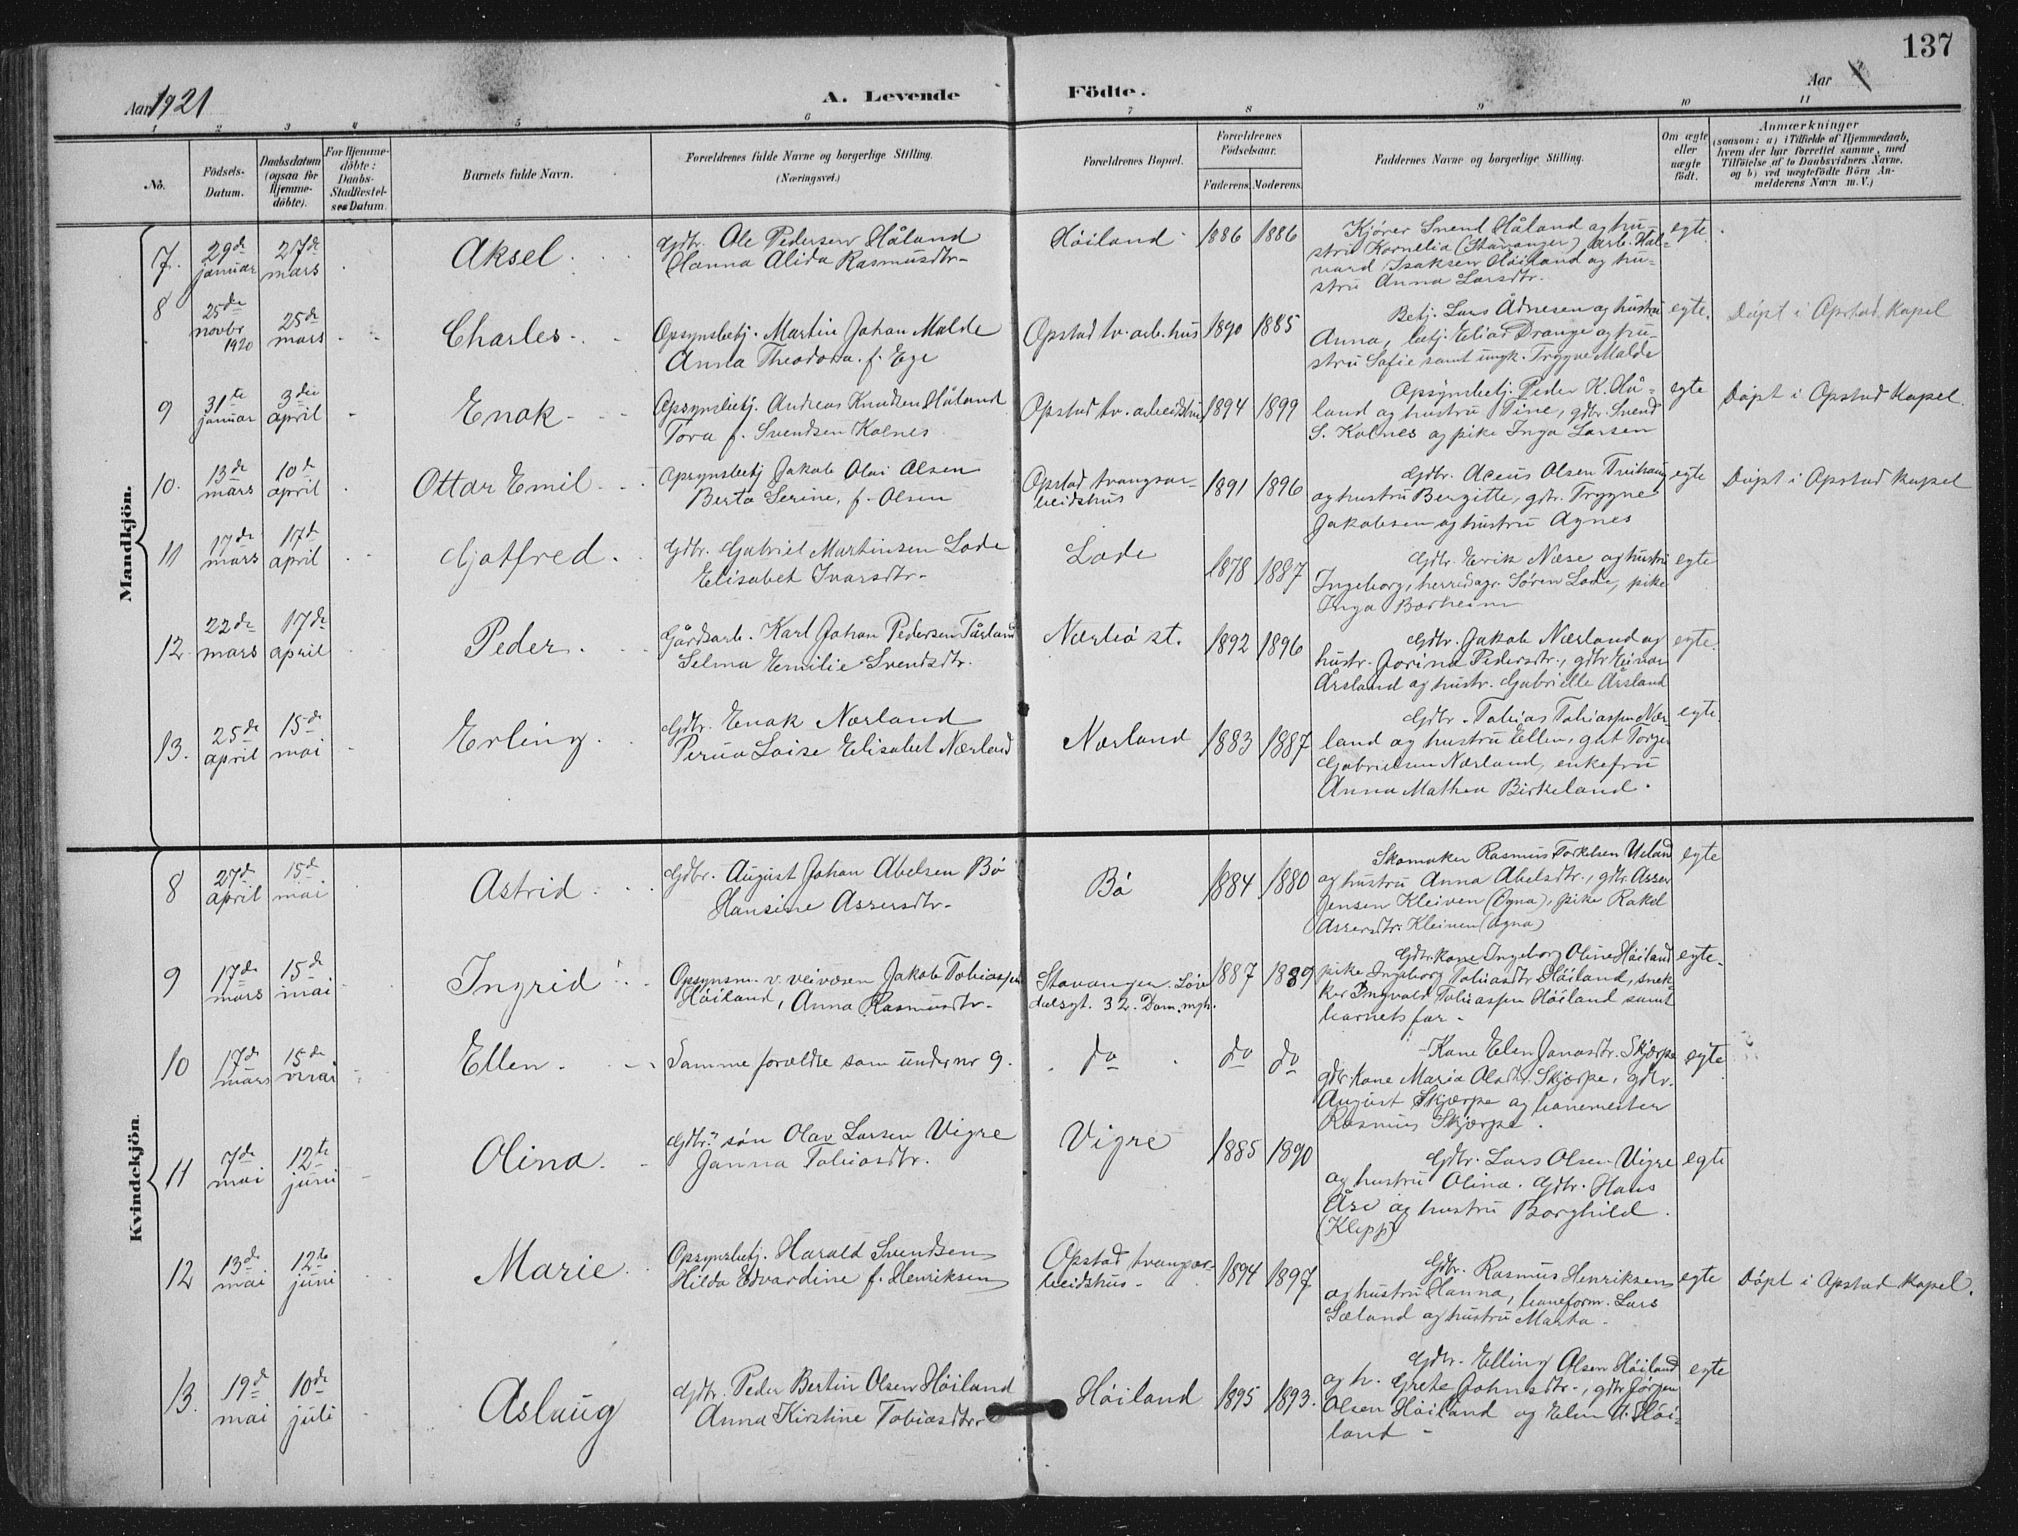 137
Aar 1921
A. Levende Födte.
Aar
1 2 3 4 5 6 7 8 9 10 11
No.
Födsels-
Datum.
Daabsdatum
(ogsaa for
Hjemme-
döbte).
For Hjemme-
döbte:
Daabs-
Stadfæstel-
ses Datum.
Barnets fulde Navn.
Forældrenes fulde Navne og borgerlige Stilling.
(Næringsvei.)
Forældrenes Bopæl.
Forældrenes
Födselsaar.
Faderens. Moderens.
Faddernes Navne og borgerlige Stilling.
Om ægte
eller
uægte
födt.
Anmærkninger
(saasom: a) i Tilfælde af Hjemmedaab,
hvem der har forrettet samme, med
Tilföielse af to Daabsvidners Navne,
og b) ved uægtefödte Börn An-
melderens Navn m. V.)
Mandkjön.
7. 29de januar 27de mars
Aksel
Gdbr. Ole Pedersen Håland
Hanna Alida Rasmusdtr.
Höiland 1886 1886
Kjörer Svend Håland og hu-
stru Kornelia (Stavanger) arb. Hal-
vard Isaksen Höiland og hu-
stru Anna Larsdtr.
egte.
8 25de novbr 1920 25de mars
Charles
Opsynsbetj. Martin Johan Malde
Anna Theodora f. Ege
Opstad tv. arb. hus 1890 1885
Betj. Lars Ådnesen og hustru
Anna, betj. Elias Drange og hu-
stru Sofie samt ungk. Trygve Malde
egte.
Döpt i Opstad Kapel
9 31te januar 3die april
Enok
Opsynsbetj. Andreas Knudsen Håland
Tora f. Svendsen Kolnes
Opstad tv. arbeidshus 1894 1899
Opsynsbetj. Peder K. Hå-
land og hustru Tine, gdbr. Svend
S. Kolnes og pike Inga Larsen
egte
Döpt i Opstad Kapel.
10. 13de mars 10de april
Ottar Emil
Opsynsbetj Jakob Olai Olsen
Berta Serine, f. Olsen
Opstad tvangsar-
beidshus 1891 1896
Gdbr. Olsen
og hustru Bergitte, gdbr. Trygve
Jakobsen og hustru Agnes
egte
Döpt i Opstad Kapel
11 17de mars 17de april
Gotfred
Gdbr. Gabriel Martinsen Lode
Elisabet Ivarsdtr.
Lode 1878 1887
Gdbr. Erik Næse og hustru
Ingeborg, herredsgr. Sören Lode, pike
Inga Borheim
egte
12 22de mars 17de april
Peder
Gårdsarb. Karl Johan Pedersen Tårland
Selma Emilie Svendsdtr.
Nærbö st. 1892 1896
Gdbr. Jakob Nærland og
hustr. Jorina Pedersdtr., gdbr Einar
Årsland og hustr. Gabrielle Årsland
egte.
13. 25de april 15de mai
Erling
Gdbr. Enok Nærland
Loise Elisabet Nærland
Nærland 1883 1887
Gdbr. Tobias Tobiassen Nær-
land og hustru Ellen, gut Torger
Gabrielsen Nærland, enkefru
Anna Mathea Birkeland.
egte.
Kvindekjön.
8 27de april 15de mai
Astrid
Gdbr. August Johan Abelsen Bö
Hansine Assersdtr.
Bö 1884 1880
Skomaker Rasmus Torkelsen Ueland
og hustru Anna Abelsdtr., gdbr. Asser
Jensen Kleiven (Ogna), pike Rakel
Assersdtr. Kleiven (Ogna)
egte
9 17de mars 15de mai
Ingrid
Opsynsm. v. veivæsen Jakob Tobiassen
Höiland, Anna Rasmusdtr.
Stavanger. Löv-
dalsgt. 32. Dom. mgh. 1887 1889
Gdbr. kone Ingeborg Oline Höiland
pike Ingeborg Tobiasdtr Höiland, snek-
ker Ingvald Tobiassen Höiland samt
barnets far.
egte.
10 17de mars 15de mai
Ellen
Samme foreldre som under nr 9.
do do do
Kone Elen Jonasdtr. Skjærpe
gdbr. kone Maria Olsdtr. Skjærpe, gdbr.
August Skjærpe og banemester
Rasmus Skjærpe.
egte
11 7de mai 12te juni
Olina.
Gdbr. sön Olav Larsen Vigre
Janna Tobiasdtr.
Vigre 1885 1890
Gdbr. Lars Olsen Vigre
og hustru Olina. Gdbr. Hans
Åse og hustru Borghild.
(Klepp)
egte
12 13de mai 12te juni
Marie
Opsynsbetj. Harald Svendsen
Hilda Edvardine f. Henriksen
Opstad tvangsar-
beidshus. 1894 1897
Gdbr. Rasmus Henriksen
og hustru Hanna, baneform. Lars
Sæland og hustru Marta.
egte
Döpt i Opstad Kapel.
13. 19de mai 10de juli
Aslaug
Gdbr. Peder Bertin Olsen Höiland
Anna Kirstine Tobiasdtr
Höiland 1895 1893.
Gdbr. Elling Olsen Höiland
og h. Grete Johnsdtr., gdbr Jörgen
Olsen Höiland og Elen Höi-
land
egte